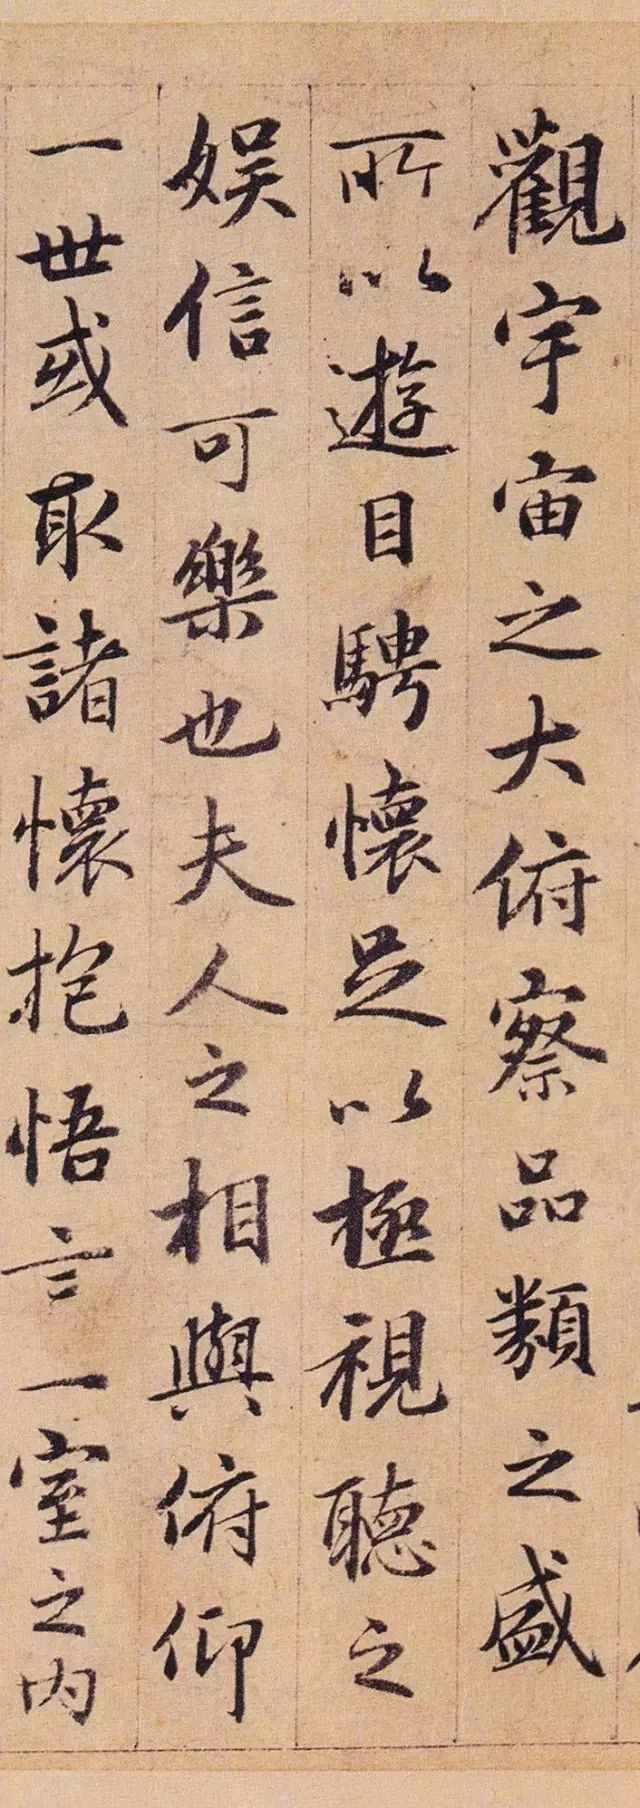 觀宇宙之大俯察品類之盛
所以遊目騁懷足以極視聽之
娱信可樂也夫人之相與俯仰
一世或取諸懷抱悟言一室之内